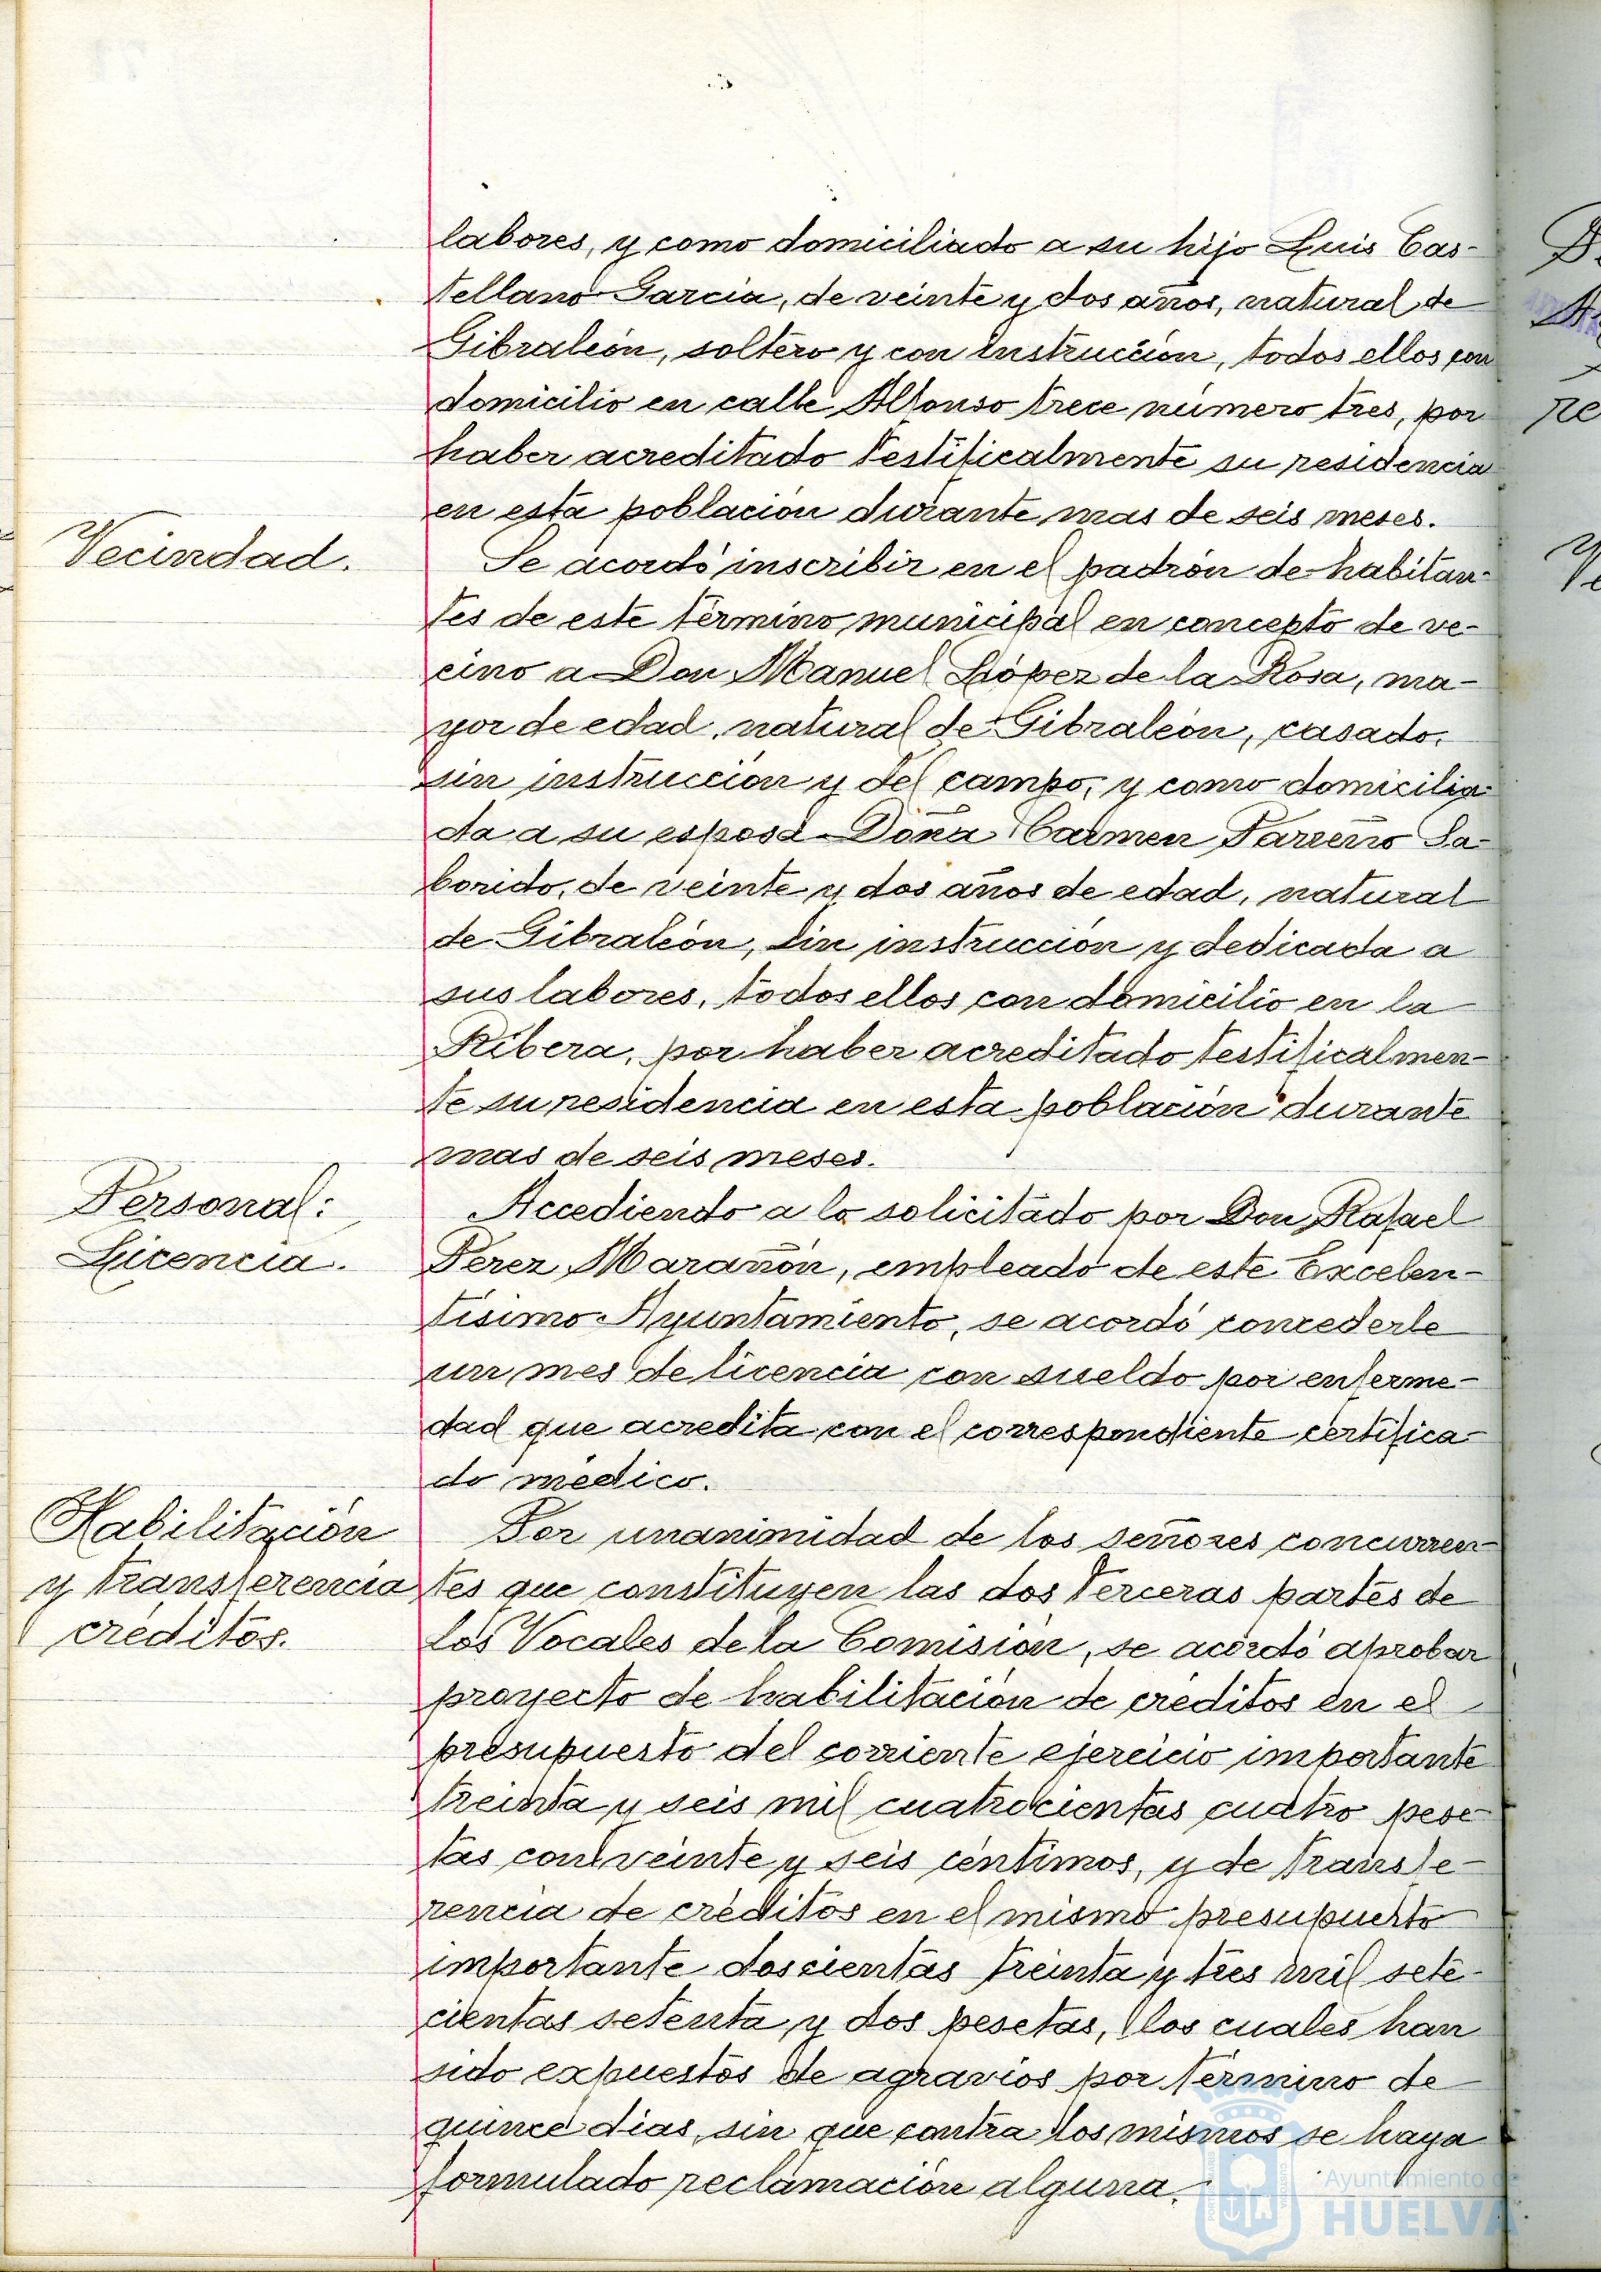 labores, y como domiciliado a su hijo Luis Cas-
tellano Garcia, de veinte y dos años, natural de
Gibraleón, soltero y con instrucción, todos ellos con
domicilio en calle Alfonso trece número tres, por
haber acreditado testificalmente su residencia
en esta población durante mas de seis meses.
Vecindad.
Se acordó inscribir en el padrón de habitan-
tes de este término municipal en concepto de ve-
cino a Don Manuel López de la Rosa, ma-
yor de edad, natural de Gibraleón, casado,
sin instrucción y del campo, y como domicilia-
da a su esposa Doña Carmen Parreño Sa-
borido, de veinte y dos años de edad, natural
de Gibraleón, sin instrucción y dedicada a
sus labores, todos ellos con domicilio en la
Ribera, por haber acreditado testificalmen-
te su residencia en esta población durante
mas de seis meses.
Personal:
Licencia.
Accediendo a lo solicitado por Don Rafael
Perez Marañón, empleado de este Excelen-
tísimo Ayuntamiento, se acordó concederle
un mes de licencia con sueldo por enferme-
dad que acredita con el correspondiente certifica-
do médico.
Habilitación
y transferencia
créditos.
Por unanimidad de los señores concurren-
tes que constituyen las dos terceras partes de
los Vocales de la Comisión, se acordó aprobar
proyecto de habilitación de créditos en el
presupuesto del corriente ejercicio importante
treinta y seis mil cuatrocientas cuatro pese-
tas con veinte y seis céntimos, y de transfe-
rencia de créditos en el mismo presupuesto
importante doscientas treinta y tres mil sete-
cientas setenta y dos pesetas, los cuales han
sido expuestos de agravios por término de
quince dias, sin que contra los mismos se haya
formulado reclamación alguna.
Ayuntamiento de
HUELVA